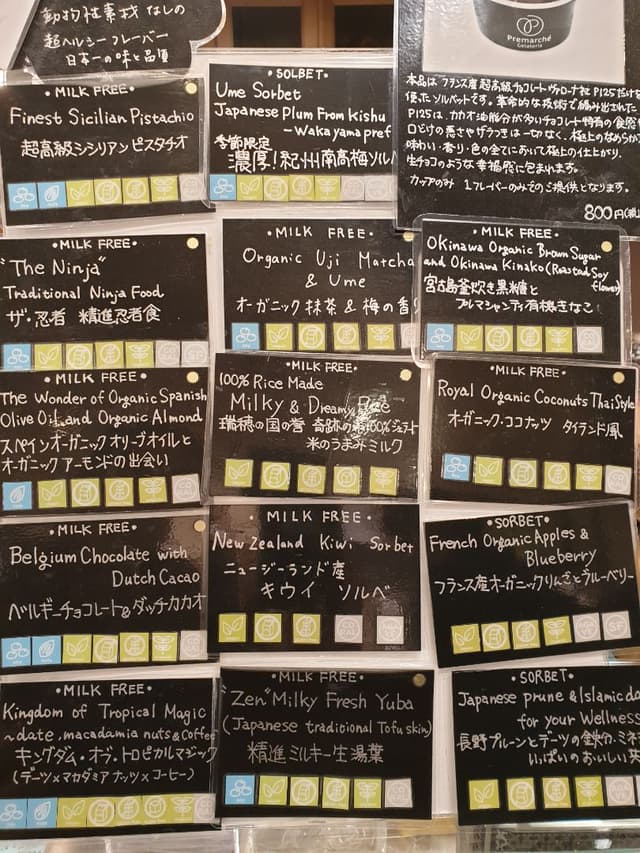 動物性素材なしの
超ヘルシーフレーバー
日本一の味と品質
Premarché
Gelateria
本品はフランス産超高級チョコレートヴァローナ社P125だけを
使ったソルベットです。革命的な技術で編み出された
P125は、カカオ油脂分が多いチョコレート特有の食感
口どけの悪さやザラつきは一切なく、極上のなめらか
味わい・香り・色の全てにおいて極上の仕上がり。
生チョコのような幸福感に包まれます。
カップのみ 1フレーバーのみでのご提供となります。
800円
•MILK FREE•
Finest Sicilian Pistachio
超高級シシリアンピスタチオ
•SOLBET•
Ume Sorbet
Japanese Plum From Kishu
~Wakayama pref
季節限定
濃厚!紀州南高梅ソルベ
•MILK FREE•
"The Ninja"
Traditional Ninja Food
ザ・忍者 精進忍者食
•MILK FREE•
Organic Uji Matcha
& Ume
オーガニック抹茶&梅の香り
•MILK FREE•
Okinawa Organic Brown Sugar
and Okinawa Kinako (Roasted Soy
flower)
宮古島釜炊き黒糖と
フルマシャンティ有機きなこ
•MILK FREE•
The Wonder of Organic Spanish
Olive Oil and Organic Almond
スペインオーガニックオリーブオイルと
オーガニックアーモンドの出会い
100% Rice Made
•MILK FREE•
Milky & Dreamy Rice
瑞穂の国の誉 奇跡の米100%ジェラート
米のうまみミルク
•MILK FREE•
Royal Organic Coconuts Thai Style
オーガニック・ココナッツ タイランド風
•MILK FREE•
Belgium Chocolate with
Dutch Cacao
ベルギーチョコレート&ダッチカカオ
•MILK FREE•
New Zealand Kiwi Sorbet
ニュージーランド産
キウイ ソルベ
•SORBET•
French Organic Apples &
Blueberry
フランス産オーガニックりんごとブルーベリー
•MILK FREE•
Kingdom of Tropical Magic
~date, macadamia nuts & Coffee
キングダム・オブ・トロピカルマジック
(デーツ×マカダミアナッツ×コーヒー)
•MILK FREE•
"Zen" Milky Fresh Yuba
(Japanese traditional Tofu skin)
精進ミルキー生湯葉
•SORBET•
Japanese prune & Islamic da
for your Wellness
長野プルーンとデーツの鉄分・ミネ
いっぱいのおいしい